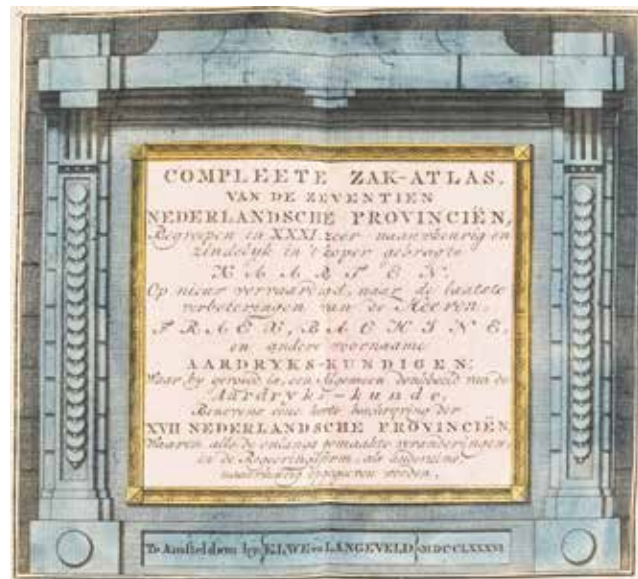 COMPLEETE ZAK-ATLAS.
VAN DE ZEVENTIEN
NEDERLANDSCHE PROVINCIËN,
Begreepen in XXXI. zeer naauwkeurig en
zindelyk in 't koper gebragte
KAARTEN.
Op nieuw vervaardigd, naar de laatste
verbeteringen van de Heeren,
FRAEX, BACHINE,
en andere voorname
AARDRYKS-KUNDIGEN:
Waar by gevoegd is, een Algemeen denkbeeld van de
Aardryks-kunde,
Benevens eene korte beschryving der
XVII NEDERLANDSCHE PROVINCIËN,
Waar in alle de onlangs gemaakte veranderingen,
in de Regeeringsform, als anderzins,
naauwkeurig opgegeeven worden.
Te Amsteldam by ELWE en LANGEVELD MDCCLXXXVI